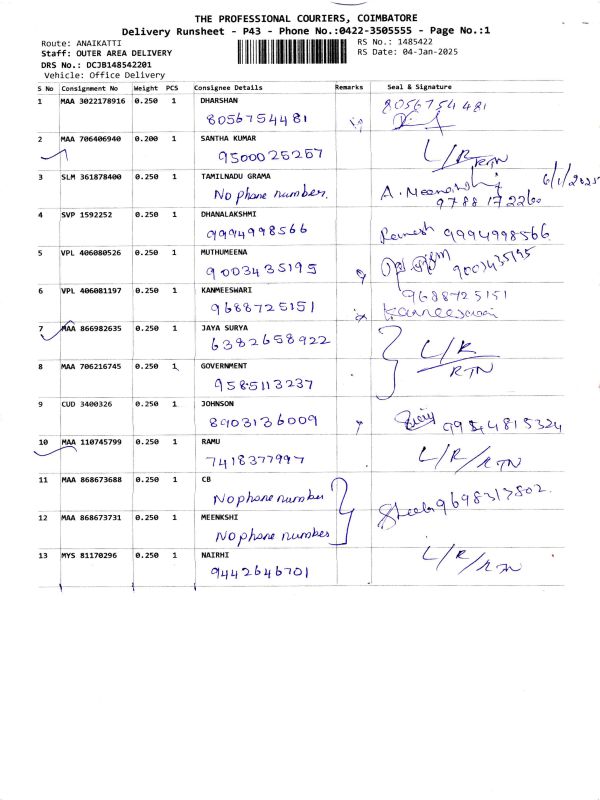 THE PROFESSIONAL COURIERS, COIMBATORE
Delivery Runsheet - P43 - Phone No.:0422-3505555 - Page No.:1
Route: ANAIKATTI
Staff: OUTER AREA DELIVERY
DRS No.: DCJB148542201
Vehicle: Office Delivery
RS No.: 1485422
RS Date: 04-Jan-2025
S No Consignment No Weight PCS Consignee Details Remarks Seal & Signature
1 MAA 3022178916 0.250 1 DHARSHAN 8056754481
8056754481
2 MAA 706406940 0.200 1 SANTHA KUMAR
9500025257 L/R/RTN
3 SLM 361878400 0.250 1 TAMILNADU GRAMA 6/1/2025
No phone number. A. Meenakshi
9788172260
4 SVP 1592252 0.250 1 DHANALAKSHMI
9994998566 Ramesh 9994998566
5 VPL 406080526 0.250 1 MUTHUMEENA
9003435195 9003435195
6 VPL 406081197 0.250 1 KANMEESWARI 9688725151
9688725151 Kanmeeswari
7 MAA 866982635 0.250 1 JAYA SURYA
6382658922 L/R
RTN
8 MAA 706216745 0.250 1 GOVERNMENT
9585113237
9 CUD 3400326 0.250 1 JOHNSON
8903136009
10 MAA 110745799 0.250 1 RAMU
7418377997 L/R/RTN
11 MAA 868673688 0.250 1 CB
No phone number 9698313802
12 MAA 868673731 0.250 1 MEENKSHI
No phone number
13 MYS 81170296 0.250 1 NAIRHI
9442646701 L/R/RTN